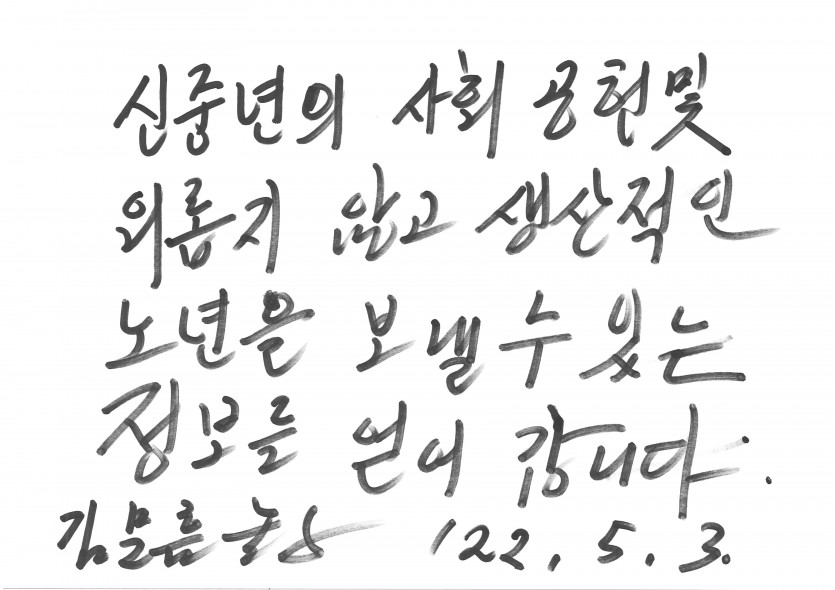 신중년의 사회 공헌 및
외롭지 않고 생산적인
노년을 보낼 수 있는
정보를 얻어 갑니다.
'22. 5. 3.